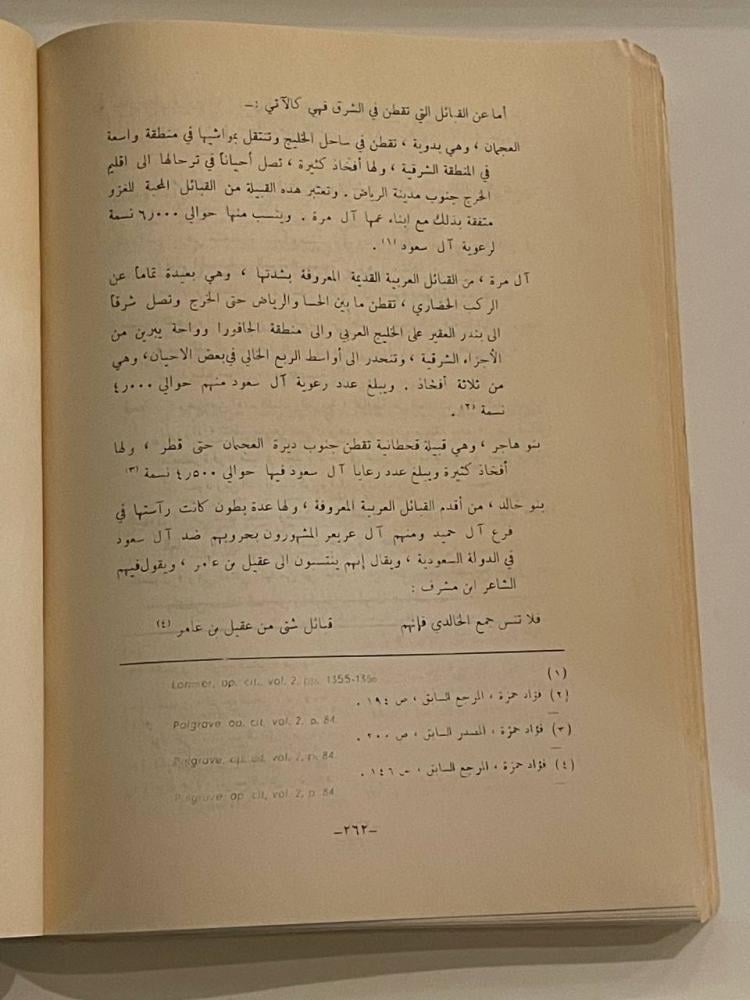 أما عن القبائل التي تقطن في الشرق فهي كالآتي :ـ
العجمان ، وهي بدوية ، تقطن في ساحل الخليج وتنتقل بمواشيها في منطقة واسعة
في المنطقة الشرقية ، ولها أفخاذ كثيرة ، تصل أحياناً في ترحالها الى اقليم
الخرج جنوب مدينة الرياض . وتعتبر هذه القبيلة من القبائل المحبة للغزو
متفقة بذلك مع ابناء عمها آل مرة . وينسب منها حوالي ٦٫٠٠٠ نسمة
لرعوية آل سعود (١) .
آل مرة ، من القبائل العربية القديمة المعروفة بشدتها ، وهي بعيدة تماماً عن
الركب الحضاري ، تقطن ما بين الحسا والرياض حتى الخرج وتصل شرقاً
الى بندر العقير على الخليج العربي والى منطقة الجافورا وواحة يبرين من
الأجزاء الشرقية ، وتنحدر الى أواسط الربع الخالي في بعض الاحيان ، وهي
من ثلاثة أفخاذ . ويبلغ عدد رعوية آل سعود منهم حوالي ٤٫٠٠٠
نسمة (٢) .
بنو هاجر ، وهي قبيلة قحطانية تقطن جنوب ديرة العجمان حتى قطر ، ولها
أفخاذ كثيرة ويبلغ عدد رعايا آل سعود فيها حوالي ٤٫٥٠٠ نسمة (٣)
بنو خالد ، من أقدم القبائل العربية المعروفة ، ولها عدة بطون كانت رآستها في
فرع آل حميد ومنهم آل عريعر المشهورون بحروبهم ضد آل سعود
في الدولة السعودية ، ويقال إنهم ينتسبون الى عقيل بن عامر ، ويقول فيهم
الشاعر ابن مشرف :
فلا تنس جمع الخالدي فإنهم قبائل شتى من عقيل بن عامر (٤)
(١) Lorimer, op. cit., vol. 2, pp. 1355-1356
(٢) فؤاد حمزة ، المرجع السابق ، ص ١٩٤ .
Palgrave, op. cit, vol. 2, p. 84.
(٣) فؤاد حمزة ، المصدر السابق ، ص ٢٠٠ .
Palgrave, op. cit, vol. 2, p. 84.
(٤) فؤاد حمزة ، المرجع السابق ، ص ١٤٦ .
Palgrave, op. cit, vol. 2, p. 84.
ـ٢٦٢ـ